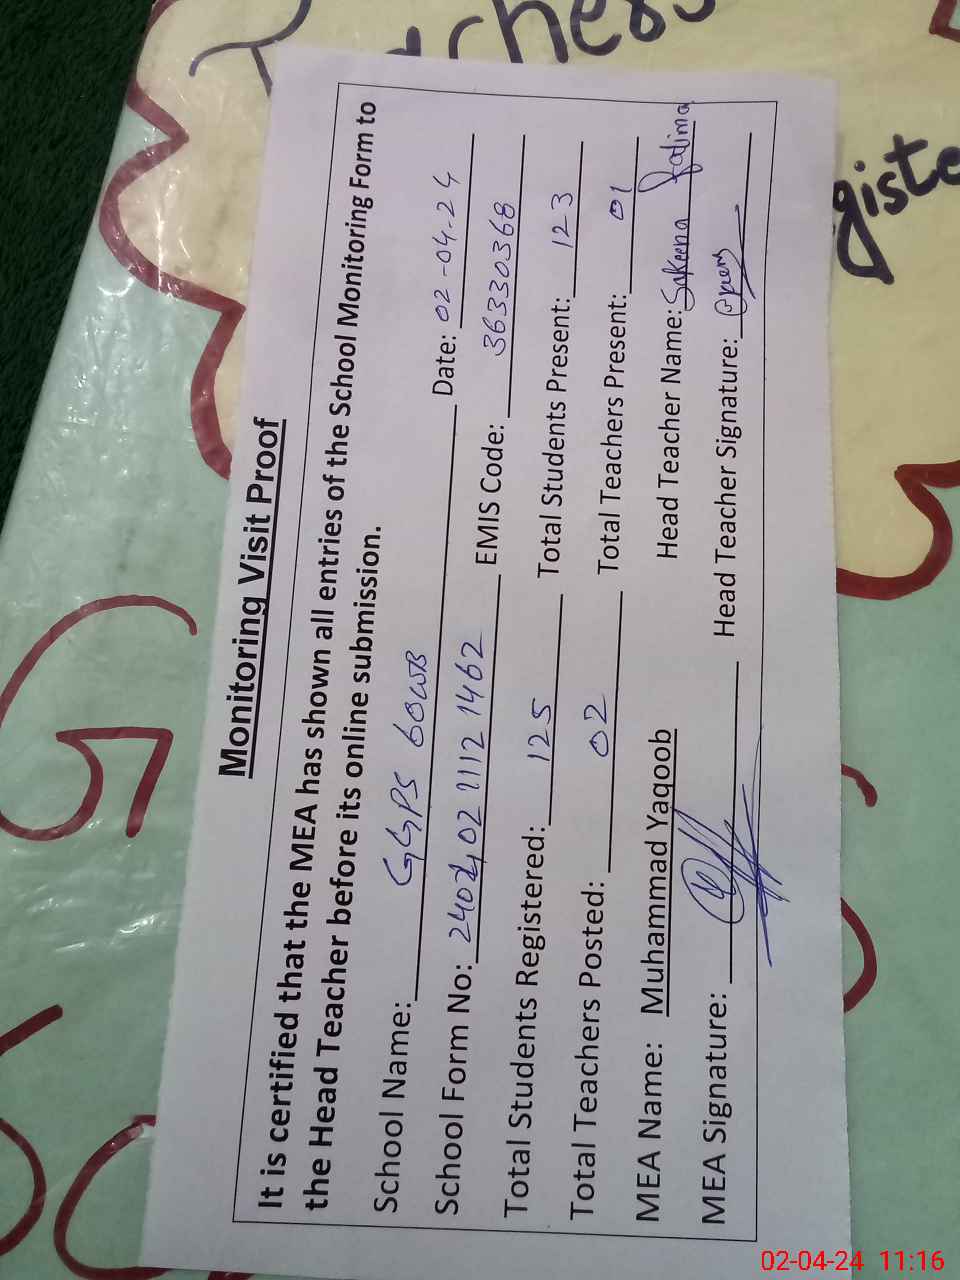 Teachers
Register
Monitoring Visit Proof
It is certified that the MEA has shown all entries of the School Monitoring Form to
the Head Teacher before its online submission.
School Name: GGPS 60WB Date: 02-04-24
School Form No: 2402,02 1112 1462 EMIS Code: 36330368
Total Students Registered: 125 Total Students Present: 123
Total Teachers Posted: 02 Total Teachers Present: 01
MEA Name: Muhammad Yaqoob Head Teacher Name: Sakeena Fatima
MEA Signature: Head Teacher Signature:
02-04-24 11:16